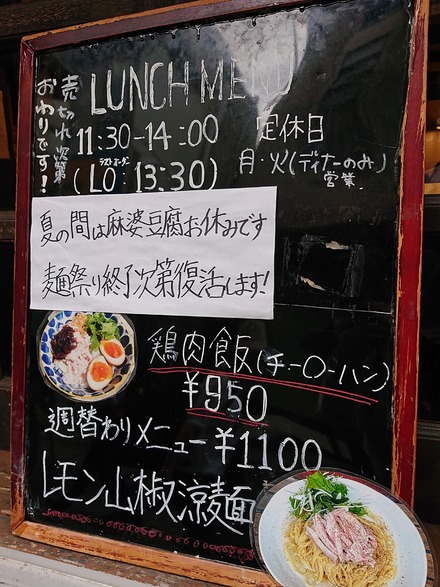 LUNCH MENU
売切れ次第
おわりです!
11:30-14:00
ラストオーダー
(LO:13:30)
定休日
月・火(ディナーのみ)
営業
夏の間は麻婆豆腐お休みです
麺祭り終了次第復活します!
鶏肉飯(チーローハン)
¥950
週替わりメニュー ¥1100
レモン山椒涼麺